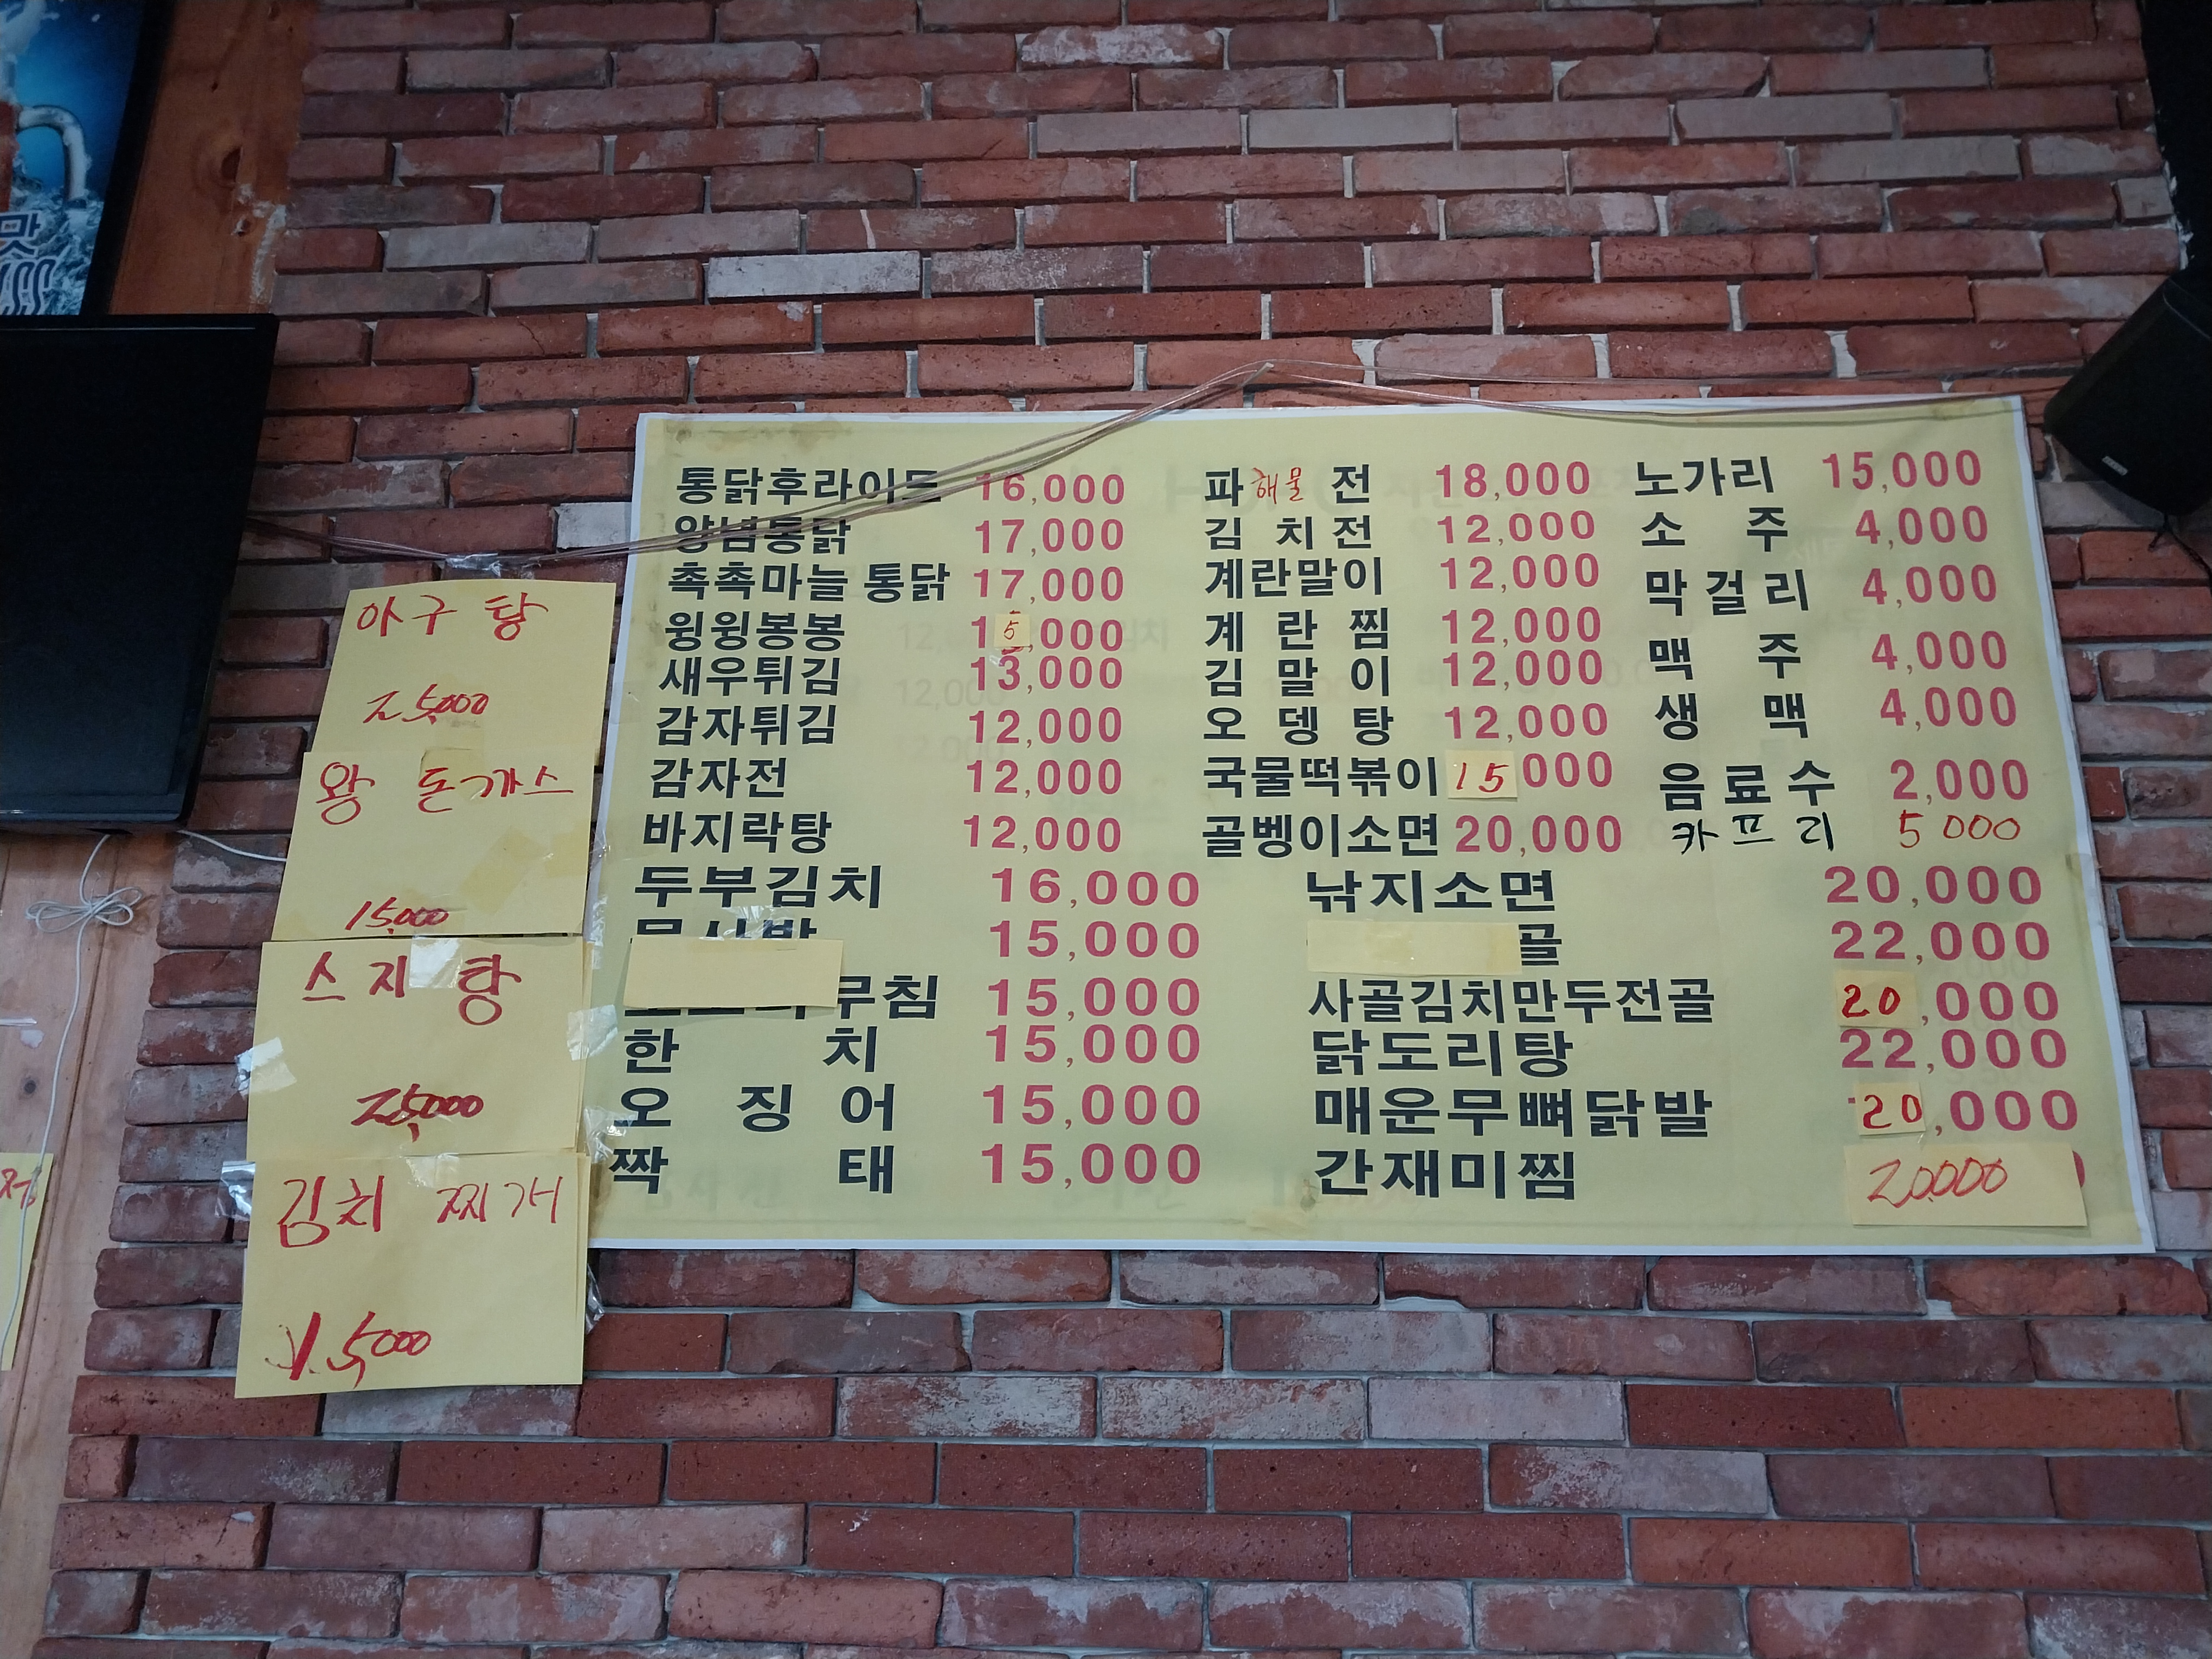 맛
아구 탕
25,000
왕 돈까스
15,000
스지 탕
25,000
김치 찌개
15,000
통닭후라이드 16,000
양념통닭 17,000
촉촉마늘통닭 17,000
윙윙봉봉 15,000
새우튀김 13,000
감자튀김 12,000
감자전 12,000
바지락탕 12,000
두부김치 16,000
15,000
무침 15,000
한치 15,000
오징어 15,000
짝태 15,000
파해물전 18,000
김치전 12,000
계란말이 12,000
계란찜 12,000
김말이 12,000
오뎅탕 12,000
국물떡볶이 15 000
골벵이소면 20,000
노가리 15,000
소주 4,000
막걸리 4,000
맥주 4,000
생맥 4,000
음료수 2,000
카프리 5 000
낚지소면 20,000
골 22,000
사골김치만두전골 20,000
닭도리탕 22,000
매운무뼈닭발 20,000
간재미찜 20,000